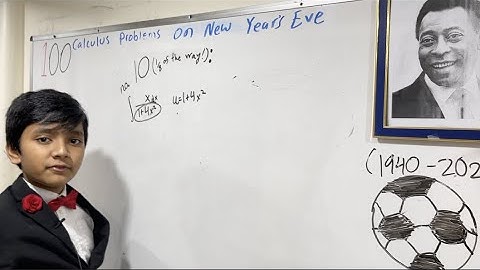 100 Calculus Problems on New Year's Eve
no. 10 (1/10 of the way!):
∫ x dx / 1+4x² u=1+4x²
(1940-202